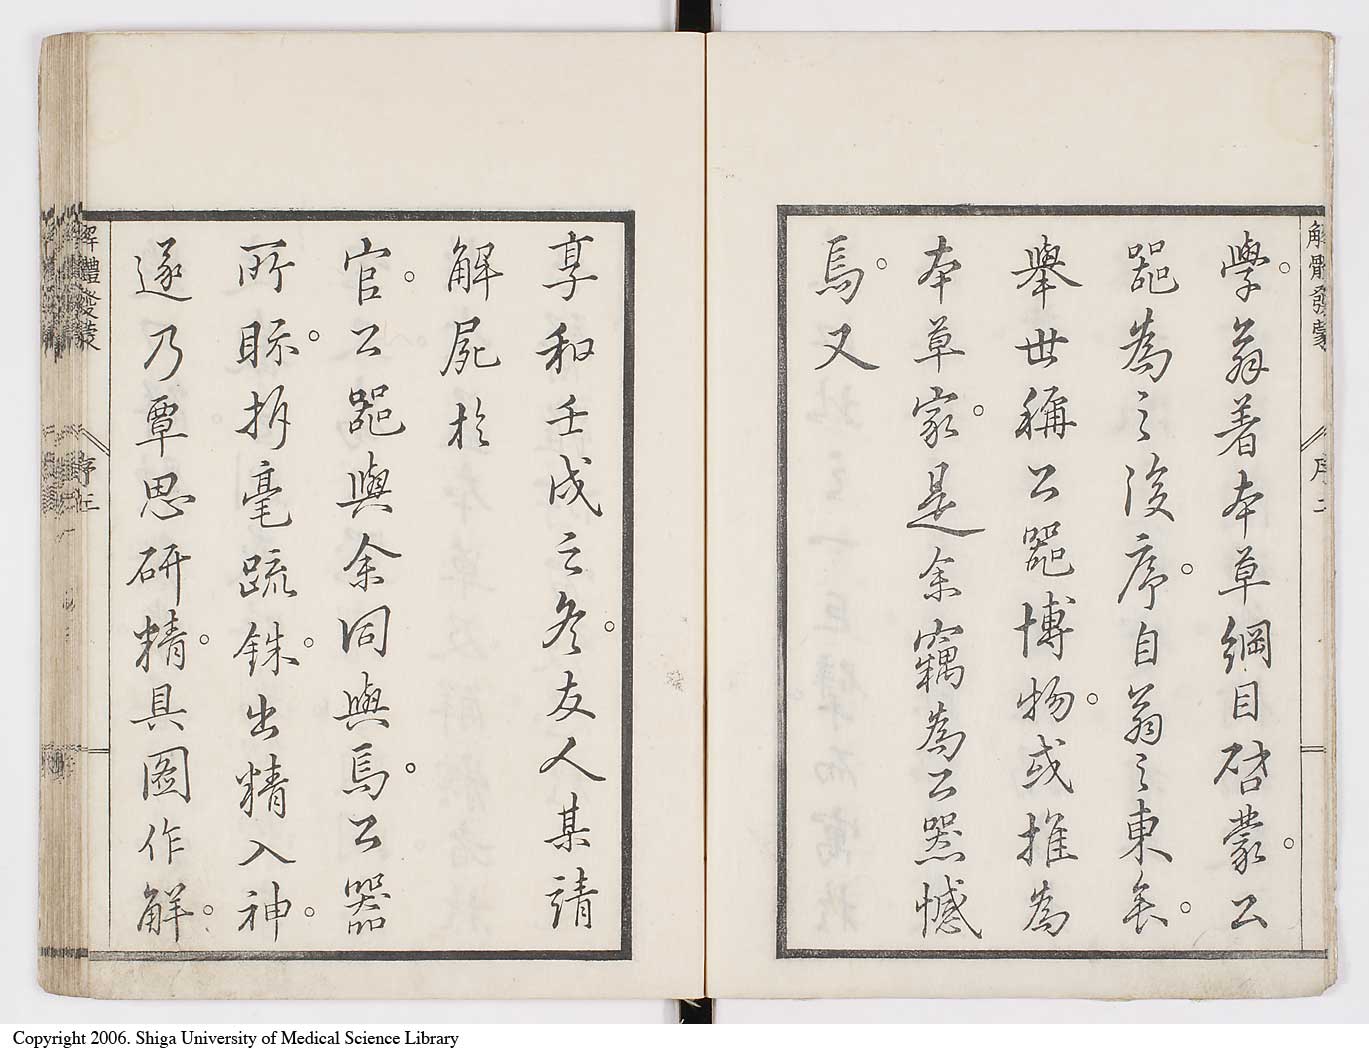 學。翁著本草綱目啓蒙。公
器為之後序。自翁之東矣。
舉世稱公器博物。或推為
本草家。是余竊為公器憾
焉。又
解體發蒙
序二
享和壬戌之冬。友人某請
解屍於
官。公器與余同與焉。公器
所眎。拆毫疏銖。出精入神。
遂乃覃思研精。具圖作解。
解體發蒙
序三
Copyright 2006. Shiga University of Medical Science Library